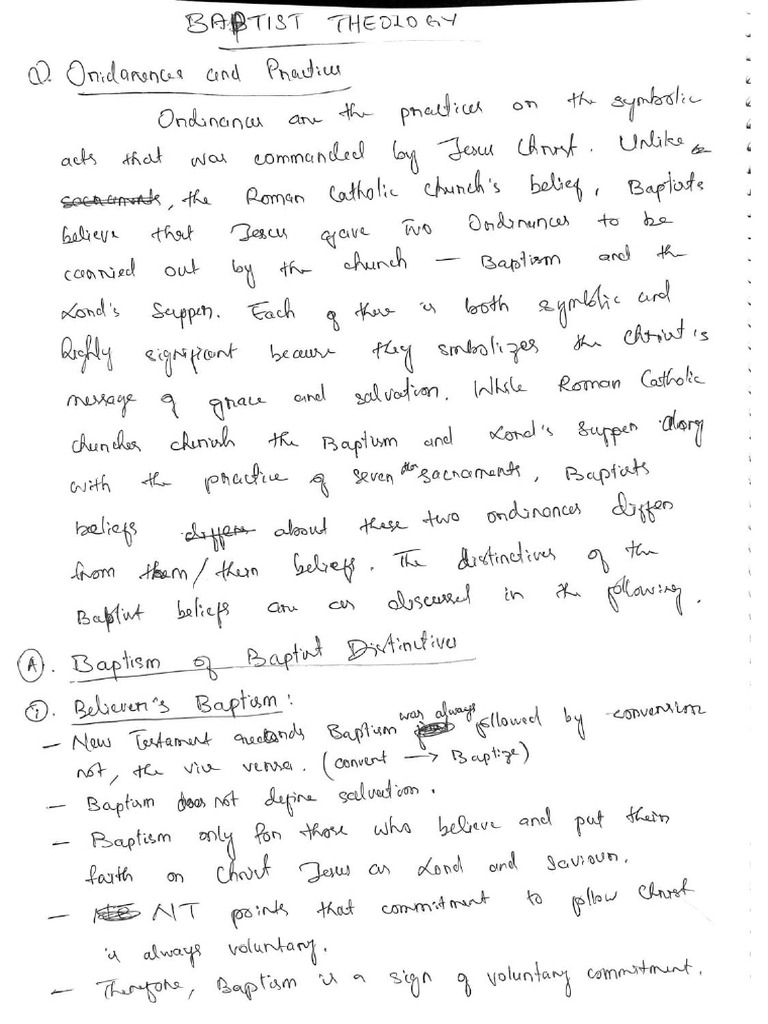 BAPTIST THEOLOGY
Q. Ordinances and Practices
Ordinances are the practices or the symbolic
acts that was commanded by Jesus Christ. Unlike
sacraments, the Roman Catholic Church's belief, Baptists
believe that Jesus gave Two Ordinances to be
carried out by the church – Baptism and the
Lord's Supper. Each of these is both symblic and
highly significant because they smbolizes the Christ's
message of grace and salvation. While Roman Catholic
churches cherish the Baptism and Lord's Supper along
with the practice of seven sacraments, Baptists
beliefs differ about these two ordinances differ
from them / their beliefs. The distinctives of the
Baptist beliefs are as discussed in the following.
A. Baptism of Baptist Distinctives
i. Believer's Baptism:
– New Testament records Baptism was always followed by conversion
not, the vice versa. (convert → Baptize)
– Baptism does not define salvation.
– Baptism only for those who believe and put their
faith on Christ Jesus as Lord and Saviour.
– NT points that commitment to follow Christ
is always voluntary.
– Therefore, Baptism is a sign of voluntary commitment.